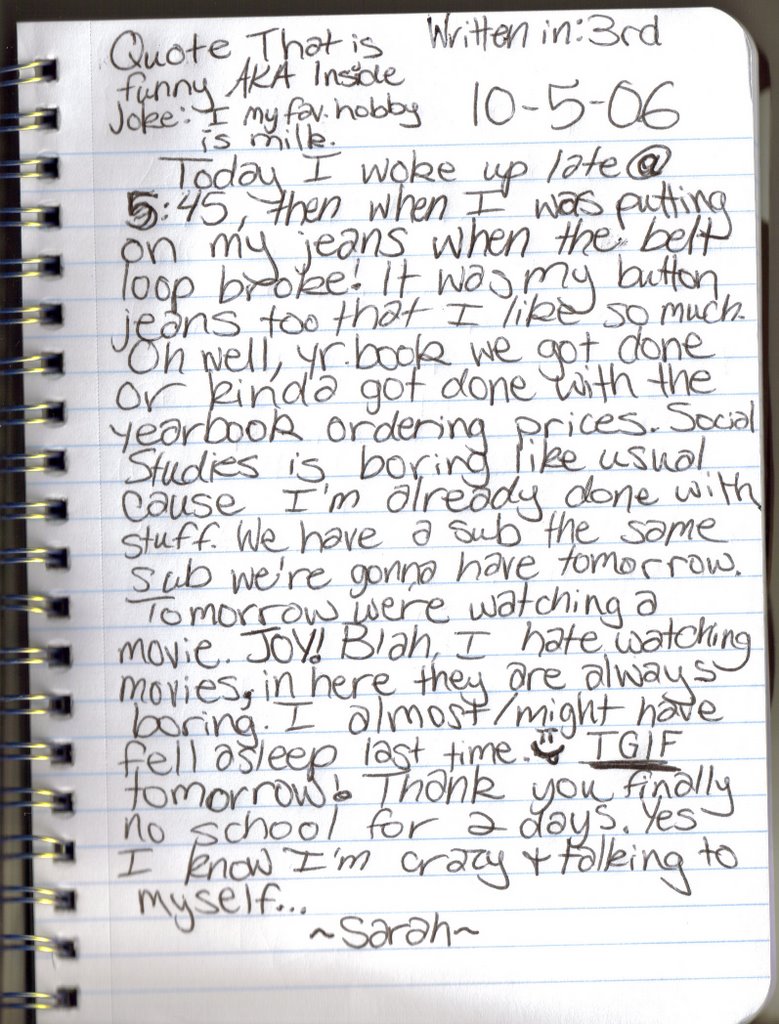 Quote That is Written in: 3rd
funny AKA Inside
Joke: I my fav. hobby 10-5-06
is milk.
Today I woke up late @
5:45, then when I was putting
on my jeans when the belt
loop broke! It was my button
jeans too that I like so much.
Oh well, yr.book we got done
or kinda got done with the
yearbook ordering prices. Social
Studies is boring like usual
cause I'm already done with
stuff. We have a sub the same
sub we're gonna have tomorrow.
Tomorrow were watching a
movie. JOY! Blah, I hate watching
movies, in here they are always
boring. I almost/might have
fell asleep last time. TGIF
tomorrow! Thank you finally
no school for 2 days. Yes
I know I'm crazy + talking to
myself...
~Sarah~